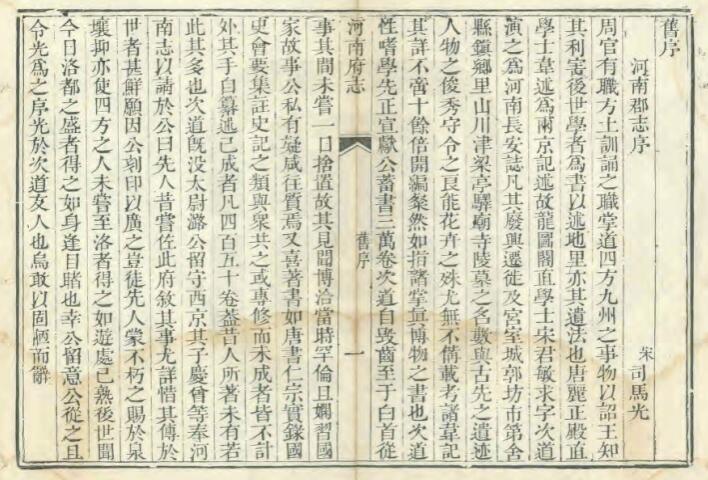 舊序
河南郡志序
宋 司馬光
周官有職方土訓誦之職掌道四方九州之事物以詔王知
其利害後世學者為書以述地里亦其遺法也唐麗正殿直
學士韋述為兩京記述故龍圖閣直學士宋君敏求字次道
演之為河南長安誌凡其廢興遷徙及宮室城郭坊市第舍
縣鎮鄉里山川津梁亭驛廟寺陵墓之名數與古先之遺迹
人物之俊秀守令之良能花卉之殊尤無不備載考諸韋記
其詳不啻十餘倍開編粲然如指諸掌真博物之書也次道
性嗜學先正宣獻公蓄書三萬卷次道自毀齒至于白首從
河南府志
舊序
一
事其間未嘗一口捨置故其見聞博洽當時罕倫且嫻習國
家故事公私有疑咸往質焉又喜著書如唐書仁宗實錄國
史會要集註史記之類與眾共之或專修而未成者皆不計
外其手自纂述已成者凡四百五十卷葢昔人所著未有若
此其多也次道既没太尉潞公留守西京其子慶曾等奉河
南志以請於公曰先人昔嘗佐此府敘其事尤詳惜其傳於
世者甚鮮願因公刻印以廣之豈徒先人蒙不朽之賜於泉
壤抑亦使四方之人未嘗至洛者得之如遊處已熟後世聞
今日洛都之盛者得之如身逢目睹也幸公留意公從之且
令光為之序光於次道友人也烏敢以固陋而辭